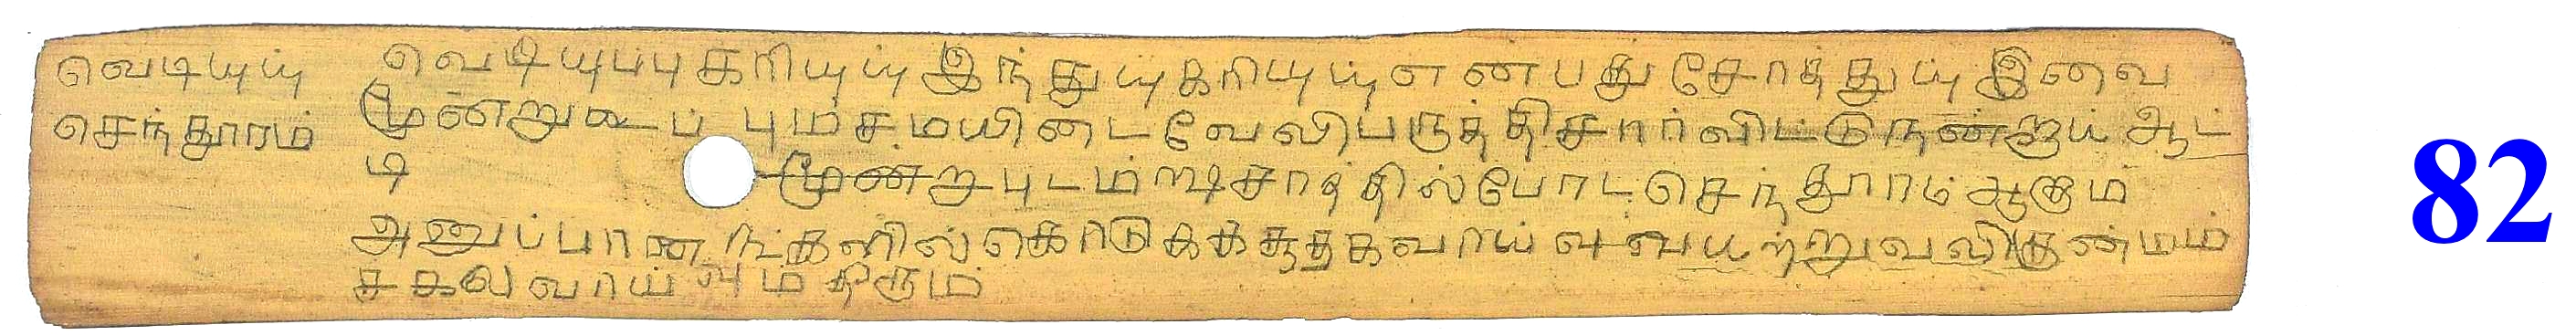 வெடியுப்பு
செந்தூரம்
வெடியுப்பு கரியுப்பு இந்துப்பு கரியுப்பு எண்பது சேர்த்துப்பு இவை
மூன்றுடைப் பும்சமயிடைவேலிபருத்திசார்விட்டுநன்றாய் ஆட்
டி மூன்று புடம் சாரத்தில்போடசெந்தூரம் ஆகும்
அனுப்பான ங்களில் கொடுக்கசூதகவாய்வு வயற்றுவலிகுன்மம்
சகலவாய்வும் தீரும்
82